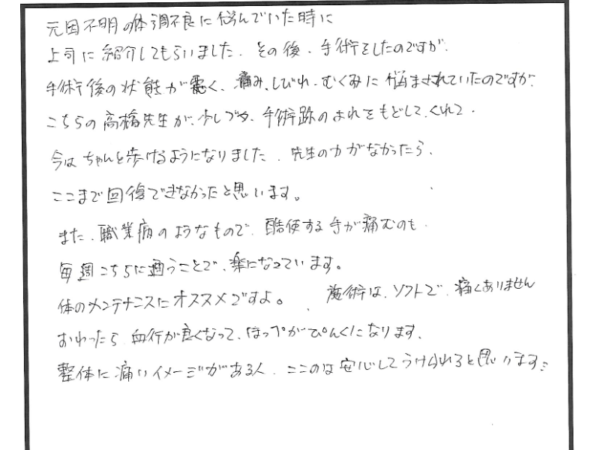 元因不明の体調不良に悩んでいた時に
上司に紹介してもらいました。その後、手術をしたのですが、
手術後の状態が悪く、痛み、しびれ、むくみに悩まされていたのですが、
こちらの高橋先生が、少しづつ、手術跡のよれをもどしてくれて、
今はちゃんと歩けるようになりました。先生の力がなかったら、
ここまで回復できなかったと思います。
また、職業病のようなもので、酷使する手が痛むのも、
毎週こちらに通うことで、楽になっています。
体のメンテナンスにオススメですよ。 施術は、ソフトで、痛くありません
おわったら血行が良くなって、ほっぺがぴんくになります。
整体に痛いイメージがある人、ここのは安心してうけられると思います